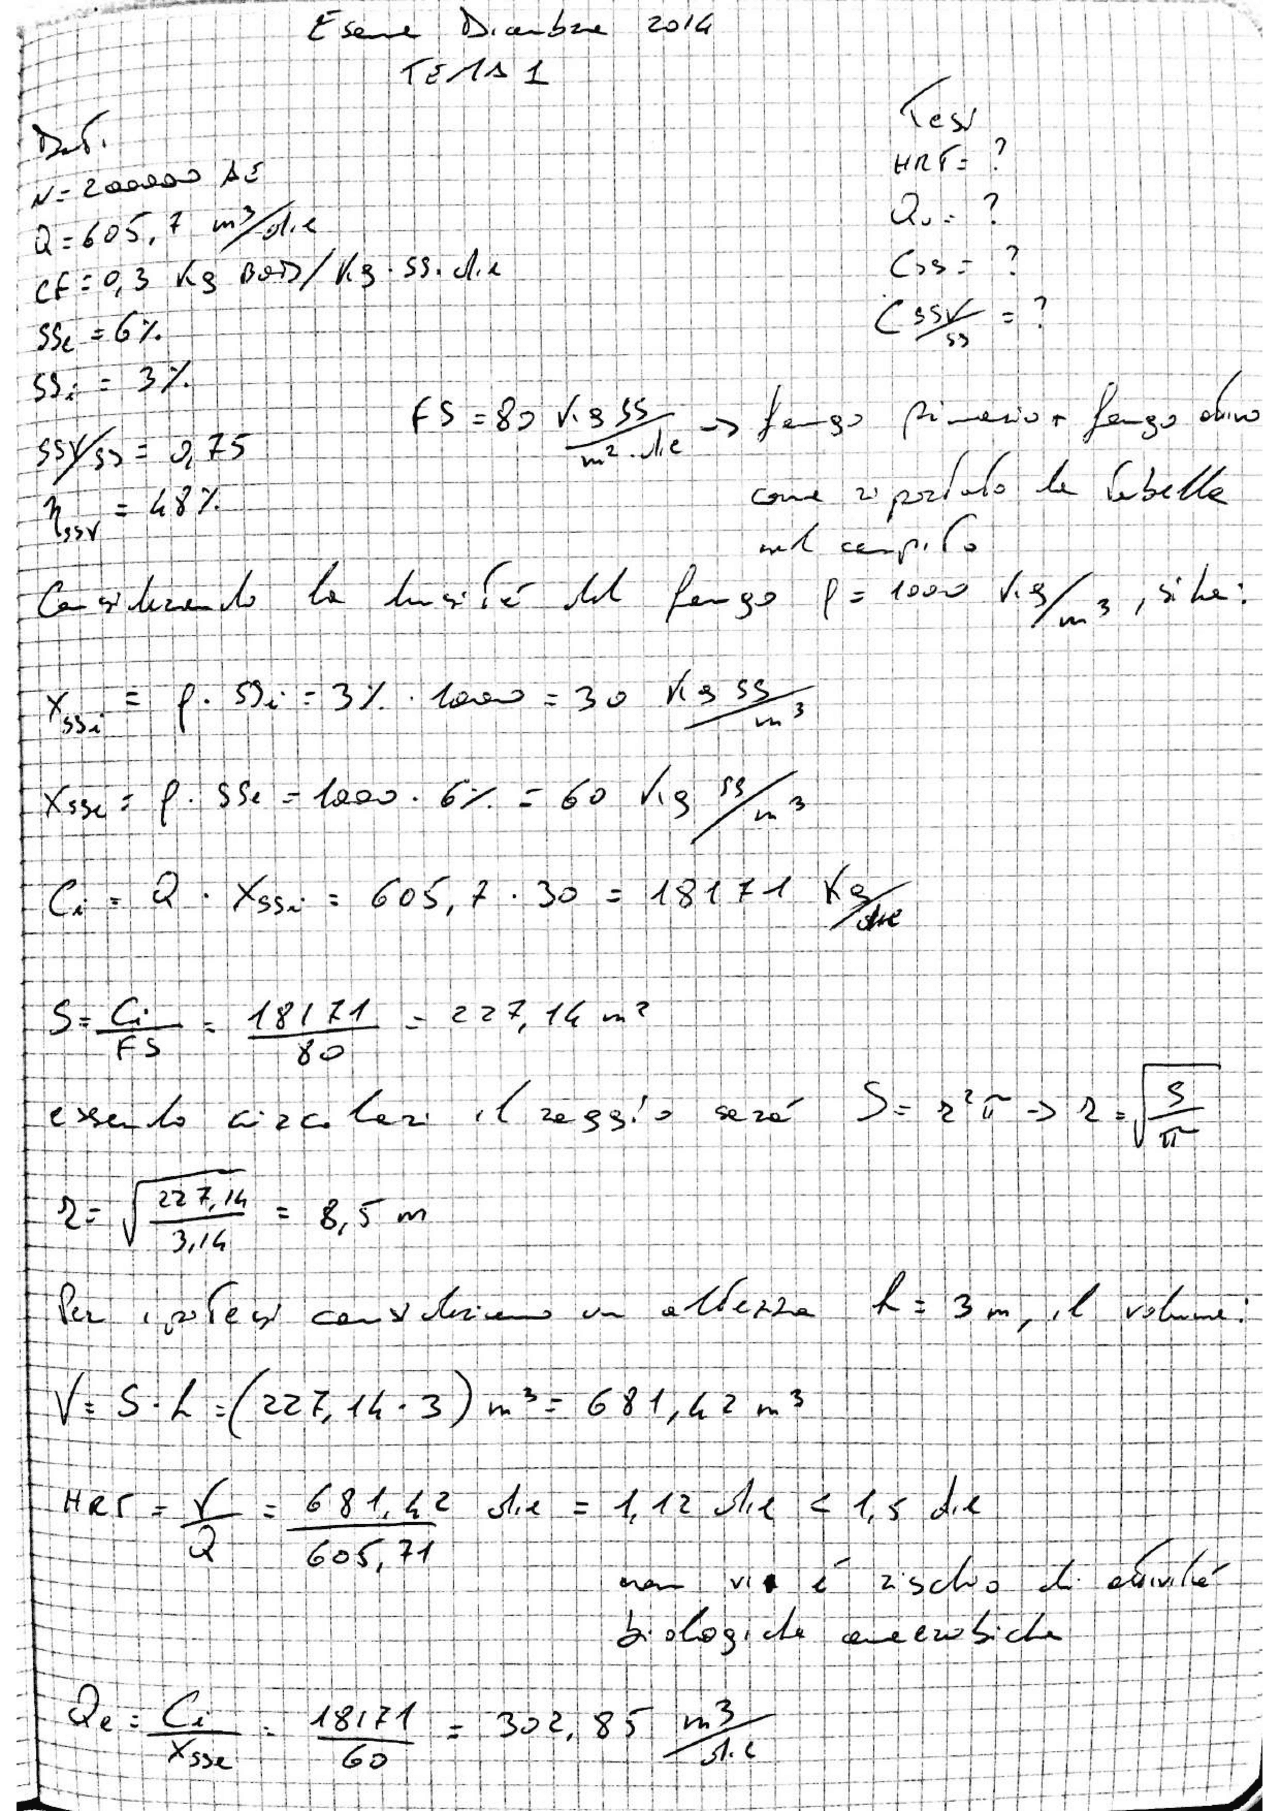 Esame Dicembre 2014
TEMA 1
Dati
N = 200000 AE
Q = 605,7 m³/die
CF = 0,3 Kg BOD/Kg·SS·die
SSe = 6%
SSi = 3%
SSV/SS = 0,75
ηSSV = 48%
Tesi
HRT = ?
Qu = ?
CSS = ?
CSSV/SS = ?
FS = 80 Kg SS/m²·die → fango primario + fango attivo
come riportato la tabella
nel compito
Considerando la densità del fango ρ = 1000 Kg/m³, si ha:
XSSi = ρ · SSi = 3% · 1000 = 30 Kg SS/m³
XSSe = ρ · SSe = 1000 · 6% = 60 Kg SS/m³
Ci = Q · XSSi = 605,7 · 30 = 18171 Kg/die
S = Ci/FS = 18171/80 = 227,14 m²
essendo circolari il raggio sarà S = r²π → r = √(S/π)
r = √(227,14/3,14) = 8,5 m
Per ipotesi consideriamo un altezza h = 3 m, il volume:
V = S·h = (227,14·3) m³ = 681,42 m³
HRT = V/Q = 681,42/605,71 die = 1,12 die < 1,5 die
non vi è rischio di attività
biologiche anaerobiche
Qe = Ci/XSSe = 18171/60 = 302,85 m³/die